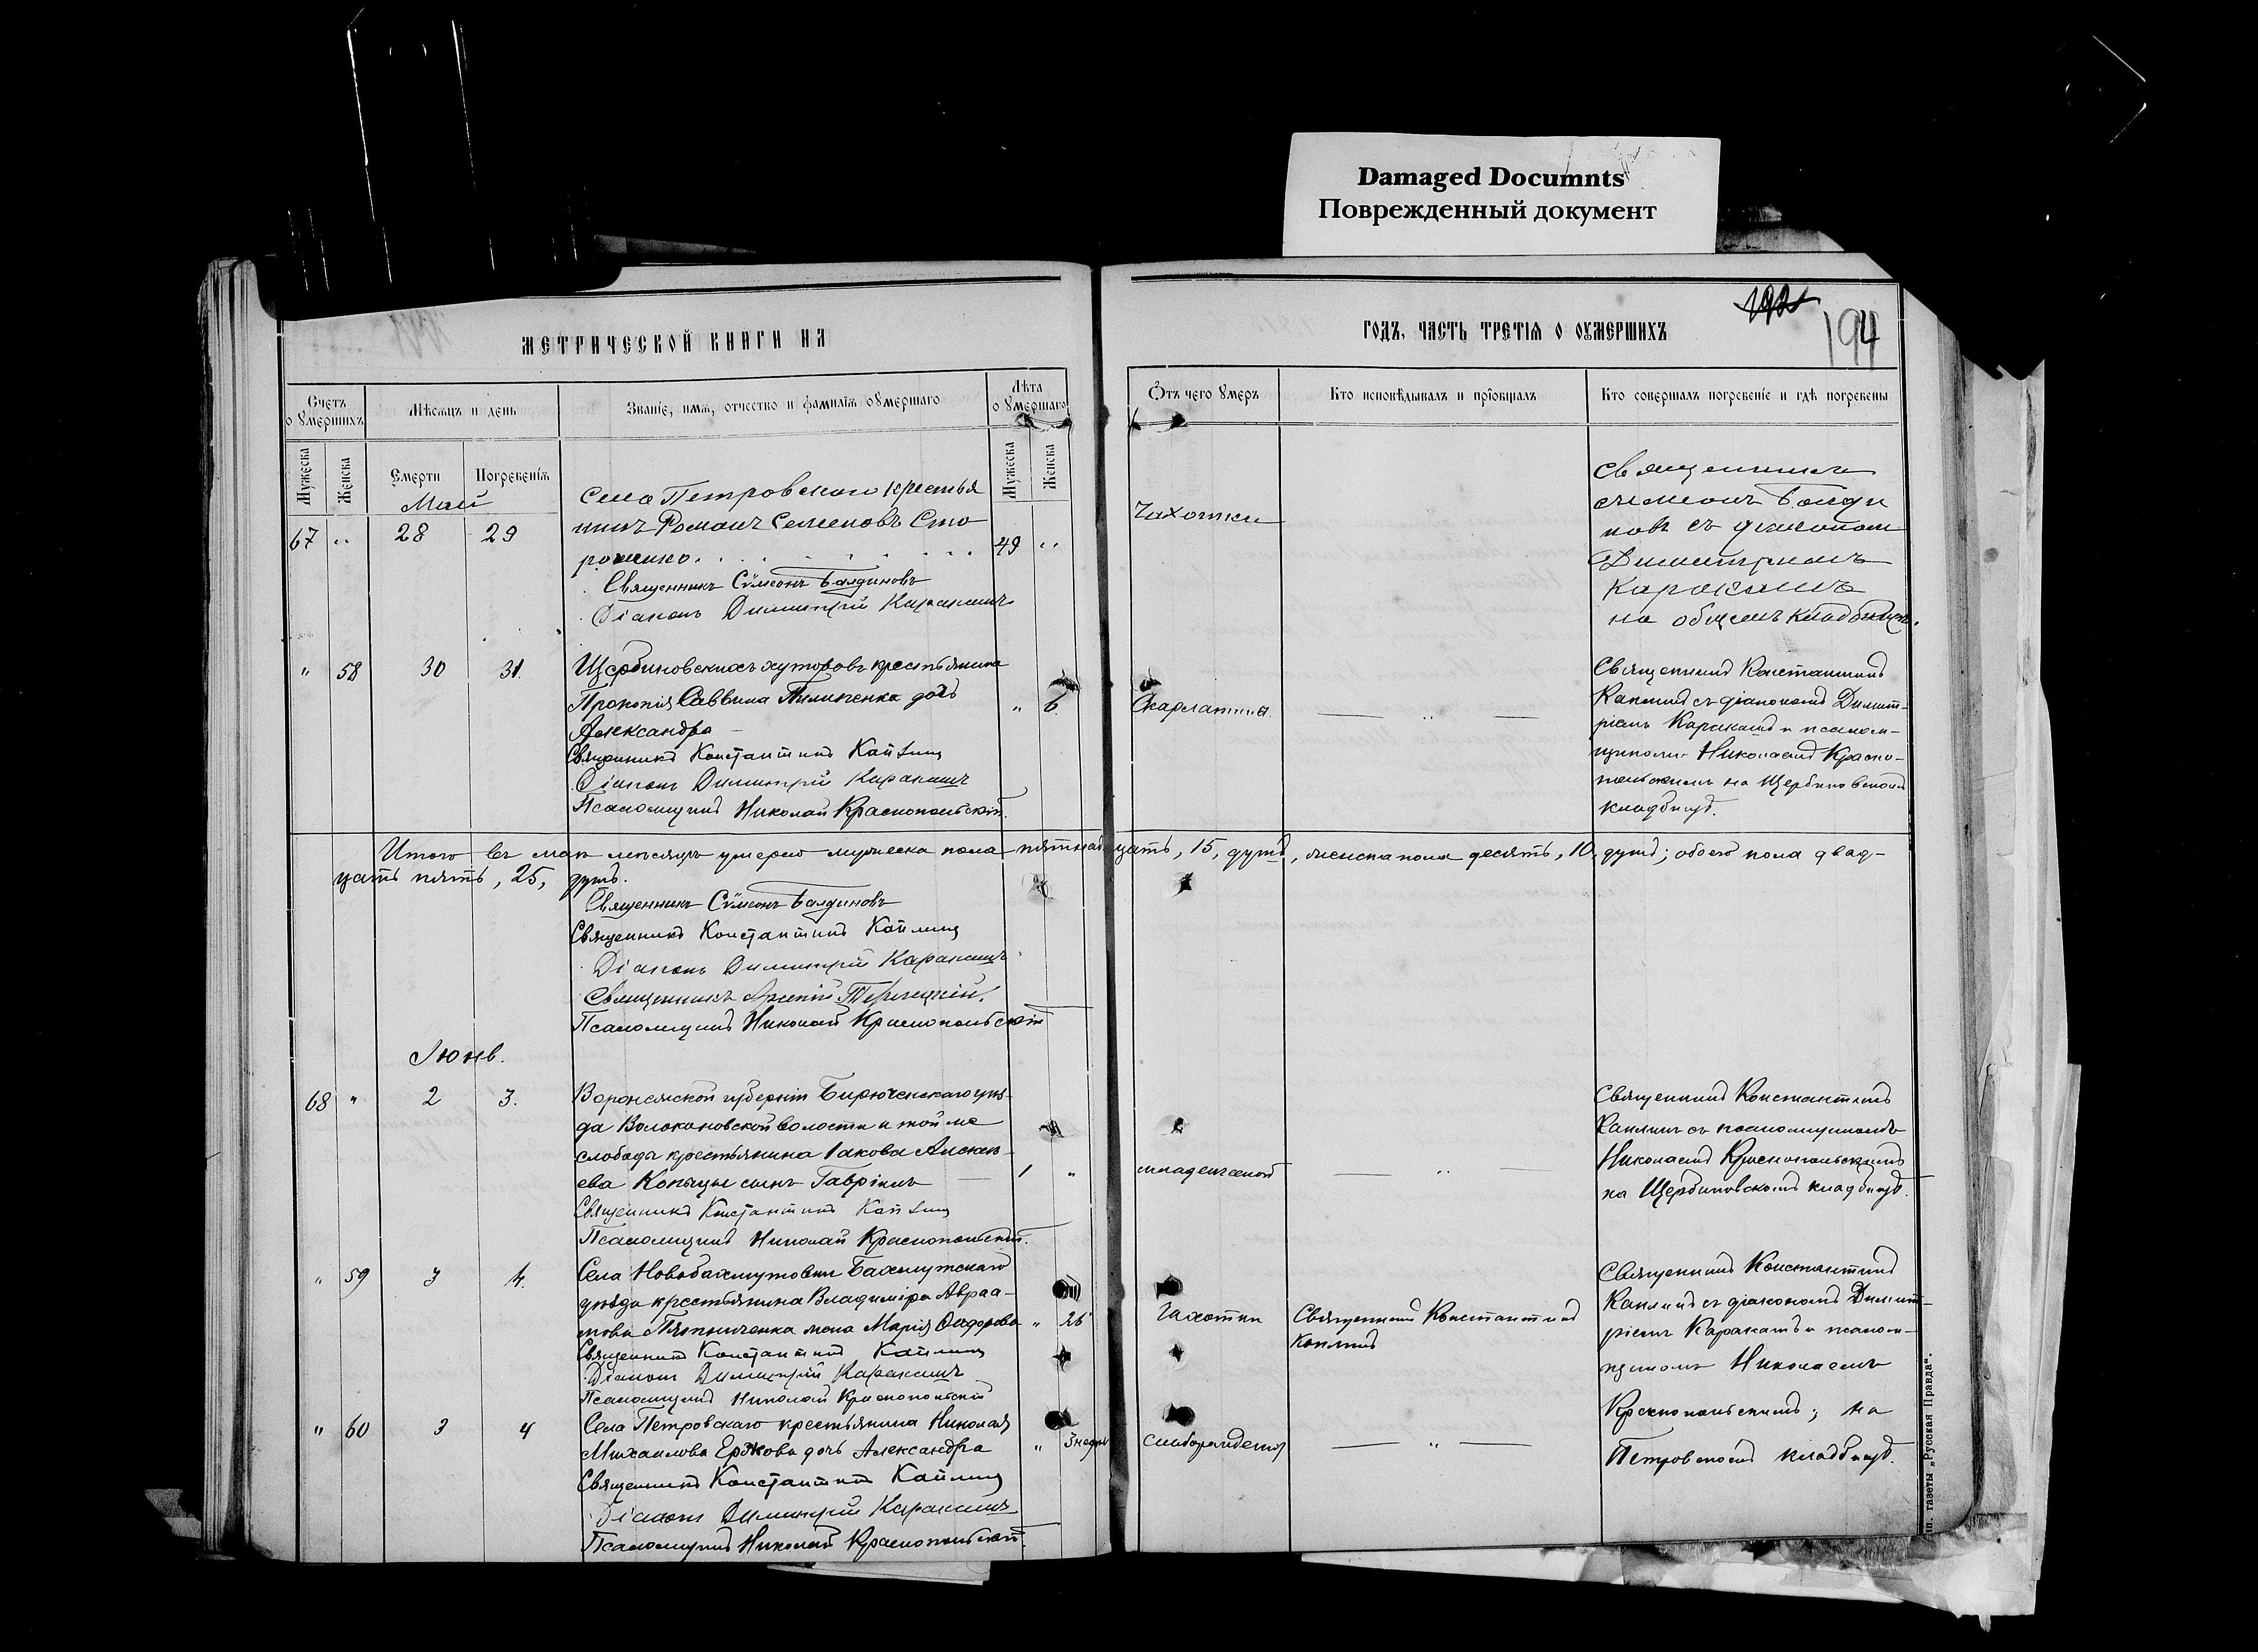 Damaged Documnts
Поврежденный документ
МЕТРИЧЕСКОЙ КНИГИ НА
ГОДЪ, ЧАСТЬ ТРЕТІЯ О ОУМЕРШИХЪ
194
Счетъ о умершихъ
Мѣсяцъ и день
Званіе, имя, отчество и фамилія умершаго
Лѣта о умершаго
Отъ чего умеръ
Кто исповѣдывалъ и пріобщалъ
Кто совершалъ погребеніе и гдѣ погребены
Мужеска
Женска
Смерти
Погребенія
Мужеска
Женска
Май
67 " 28 29
Села Петровскаго крестья
нинъ Романъ Семеновъ Сто
рожко
49 "
Чахотки
Священникъ Сѷмеонъ Балдиновъ
Діаконъ Димитрій Каракашъ
Священникъ
Сѷмеонъ Балди
новъ съ діакономъ
Димитріемъ
Каракашъ
на общемъ кладбищѣ.
" 58 30 31.
Щербиновскихъ хуторовъ крестьянина
Прокопія Саввина Пилипенка дочь
Александра
" 6.
Скарлатина
— " —
Священникъ Константинъ Каплинъ
Діаконъ Димитрій Каракашъ
Псаломщикъ Николай Краснопольскій.
Священникъ Константинъ
Каплинъ съ діакономъ Димит-
ріемъ Каракашъ и псалом-
щикомъ Николаемъ Красно-
польскимъ на Щербиновскомъ
кладбищѣ.
Итого въ маѣ мѣсяцѣ умерло мужеска пола пятнадцать, 15, душъ, женска пола десять, 10, душъ; обоего пола двад-
цать пять, 25, душъ.
Священникъ Сѷмеонъ Балдиновъ
Священникъ Константинъ Каплинъ
Діаконъ Димитрій Каракашъ
Священникъ Терлецкій.
Псаломщикъ Николай Краснопольскій
Іюнь.
68 " 2 3.
Воронежской губерніи Бирюченскаго уѣз-
да Волоконовской волости и той же
слободы крестьянина Іакова Алексѣ-
ева Копыцы сынъ Гавріилъ
1 "
младенческой
— " —
Священникъ Константинъ Каплинъ
Псаломщикъ Николай Краснопольскій.
Священникъ Константинъ
Каплинъ съ псаломщикомъ
Николаемъ Краснопольскимъ
на Щербиновскомъ кладбищѣ.
" 59 3 4.
Села Новобахмутовки Бахмутскаго
уѣзда крестьянина Владиміра Авраа-
мова Пятниченка жена Марія Ѳедорова
" 26
Чахотки
Священникъ Константинъ
Каплинъ
Священникъ Константинъ Каплинъ
Діаконъ Димитрій Каракашъ
Псаломщикъ Николай Краснопольскій
Священникъ Константинъ
Каплинъ съ діакономъ Димит-
ріемъ Каракашъ и псалом-
щикомъ Николаемъ
Краснопольскимъ; на
Петровскомъ кладбищѣ.
" 60 3 4
Села Петровскаго крестьянина Николая
Михаилова Ержова дочь Александра
" 3 недѣли
— " —
Священникъ Константинъ Каплинъ
Діаконъ Димитрій Каракашъ
Псаломщикъ Николай Краснопольскій.
газеты „Русская Правда“.